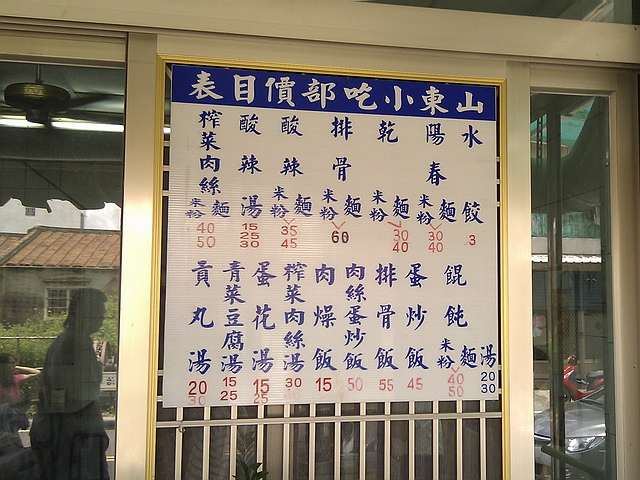 山東小吃部價目表
水餃 3
陽春 麵 米粉 30 40
乾 麵 米粉 30 40
排骨 麵 米粉 60
酸辣 麵 米粉 35 45
酸辣湯 15 25 30
榨菜肉絲 麵 米粉 40 50
餛飩 湯 麵 米粉 20 30 40 50
蛋炒飯 45
排骨飯 55
肉絲蛋炒飯 50
肉燥飯 15
榨菜肉絲湯 30
蛋花湯 15 25
青菜豆腐湯 15 25
貢丸湯 20 30